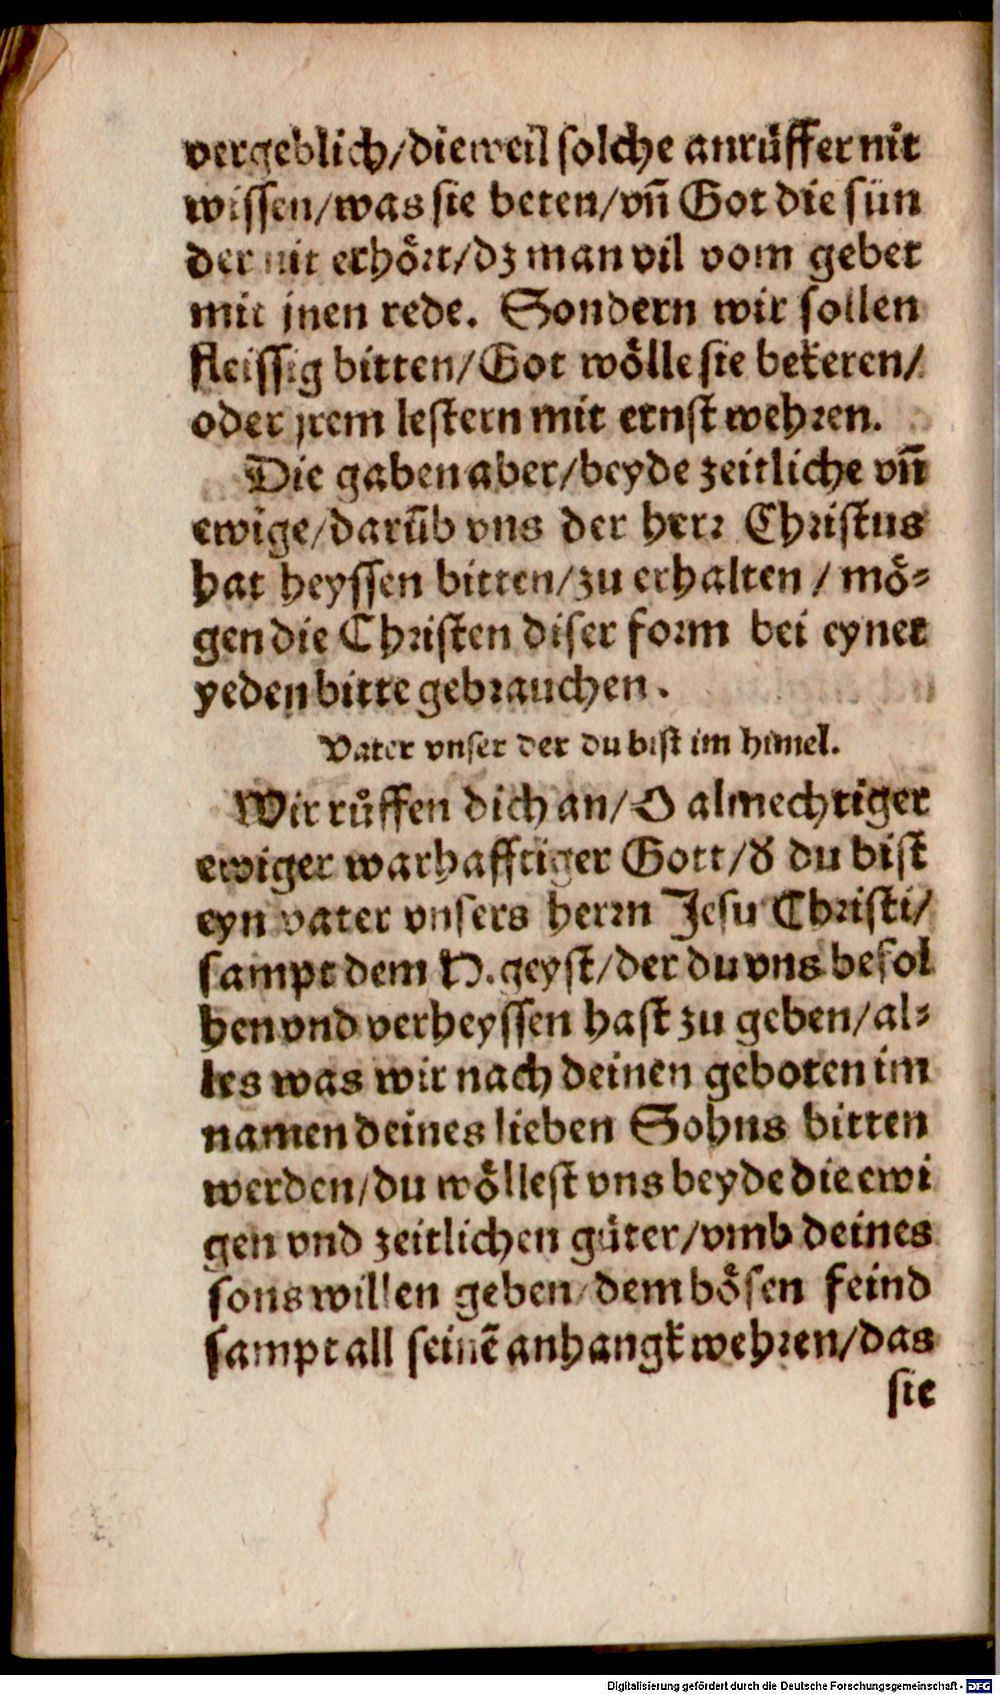 vergeblich/dieweil solche anrüffer nit
wissen/was sie beten/vñ Got die sün
der nit erhört/dz man vil vom gebet
mit jnen rede. Sondern wir sollen
fleissig bitten/Got wölle sie bekeren/
oder jrem lestern mit ernst wehren.
Die gaben aber/beyde zeitliche vñ
ewige/darũb vns der herr Christus
hat heyssen bitten/zu erhalten / mö⸗
gen die Christen diser form bei eyner
yeden bitte gebrauchen.
Vater vnser der du bist im himel.
Wir růffen dich an/O almechtiger
ewiger warhafftiger Gott/d̕ du bist
eyn vater vnsers herrn Jesu Christi/
sampt dem H. geyst/der du vns befol
hen vnd verheyssen hast zu geben/al⸗
les was wir nach deinen geboten im
namen deines lieben Sohns bitten
werden/du wöllest vns beyde die ewi
gen vnd zeitlichen güter/vmb deines
sons willen geben/dem bösen feind
sampt all seinẽ anhangk wehren/das
sie
Digitalisierung gefördert durch die Deutsche Forschungsgemeinschaft - DFG